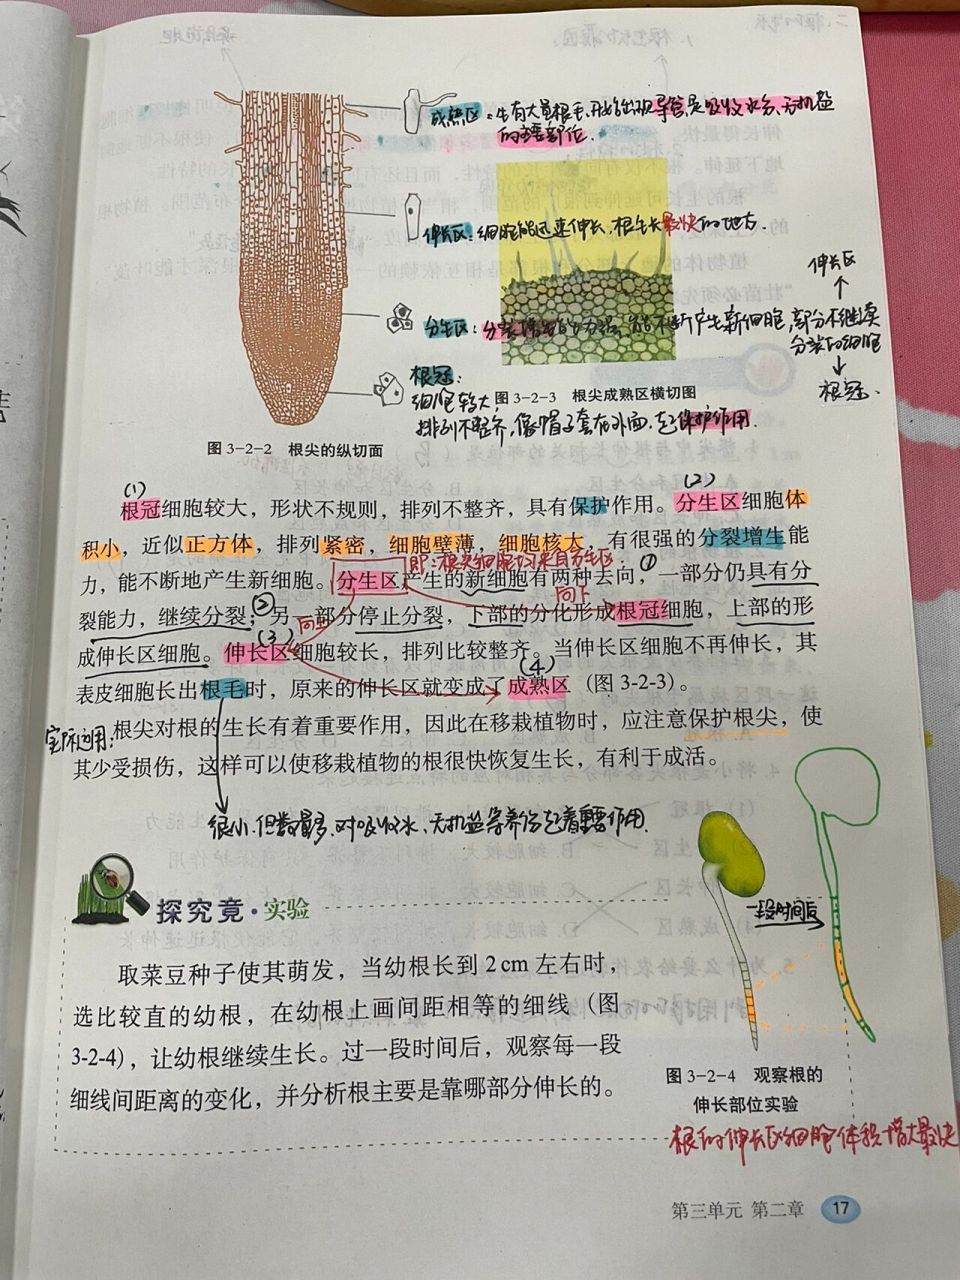 成熟区：生有大量根毛,开始出现导管,是吸收水分、无机盐
的主要部位.
伸长区：细胞能迅速伸长，根生长最快的地方.
伸长区
分生区：分裂增生能力强,能不断产生新细胞,部分不继续
分裂的细胞
根冠.
根冠：
细胞较大,
排列不整齐,像帽子套在外面,起保护作用.
图 3-2-3 根尖成熟区横切图
图 3-2-2 根尖的纵切面
(1) (2)
根冠细胞较大，形状不规则，排列不整齐，具有保护作用。分生区细胞体
积小，近似正方体，排列紧密，细胞壁薄，细胞核大，有很强的分裂增生能
即:根尖细胞均来自分生区.
力，能不断地产生新细胞。分生区产生的新细胞有两种去向，①一部分仍具有分
向下
裂能力，继续分裂；②另一部分停止分裂，下部的分化形成根冠细胞，上部的形
向上
(3) (4)
成伸长区细胞。伸长区细胞较长，排列比较整齐。当伸长区细胞不再伸长，其
表皮细胞长出根毛时，原来的伸长区就变成了成熟区（图 3-2-3）。
实际运用:
根尖对根的生长有着重要作用，因此在移栽植物时，应注意保护根尖，使
其少受损伤，这样可以使移栽植物的根很快恢复生长，有利于成活。
很小,但数量多,对吸收水、无机盐等养份起着重要作用.
探究竟·实验
一段时间后
取菜豆种子使其萌发，当幼根长到 2 cm 左右时，
选比较直的幼根，在幼根上画间距相等的细线（图
3-2-4），让幼根继续生长。过一段时间后，观察每一段
细线间距离的变化，并分析根主要是靠哪部分伸长的。
图 3-2-4 观察根的
伸长部位实验
根的伸长区细胞体积增大最快
第三单元 第二章 17